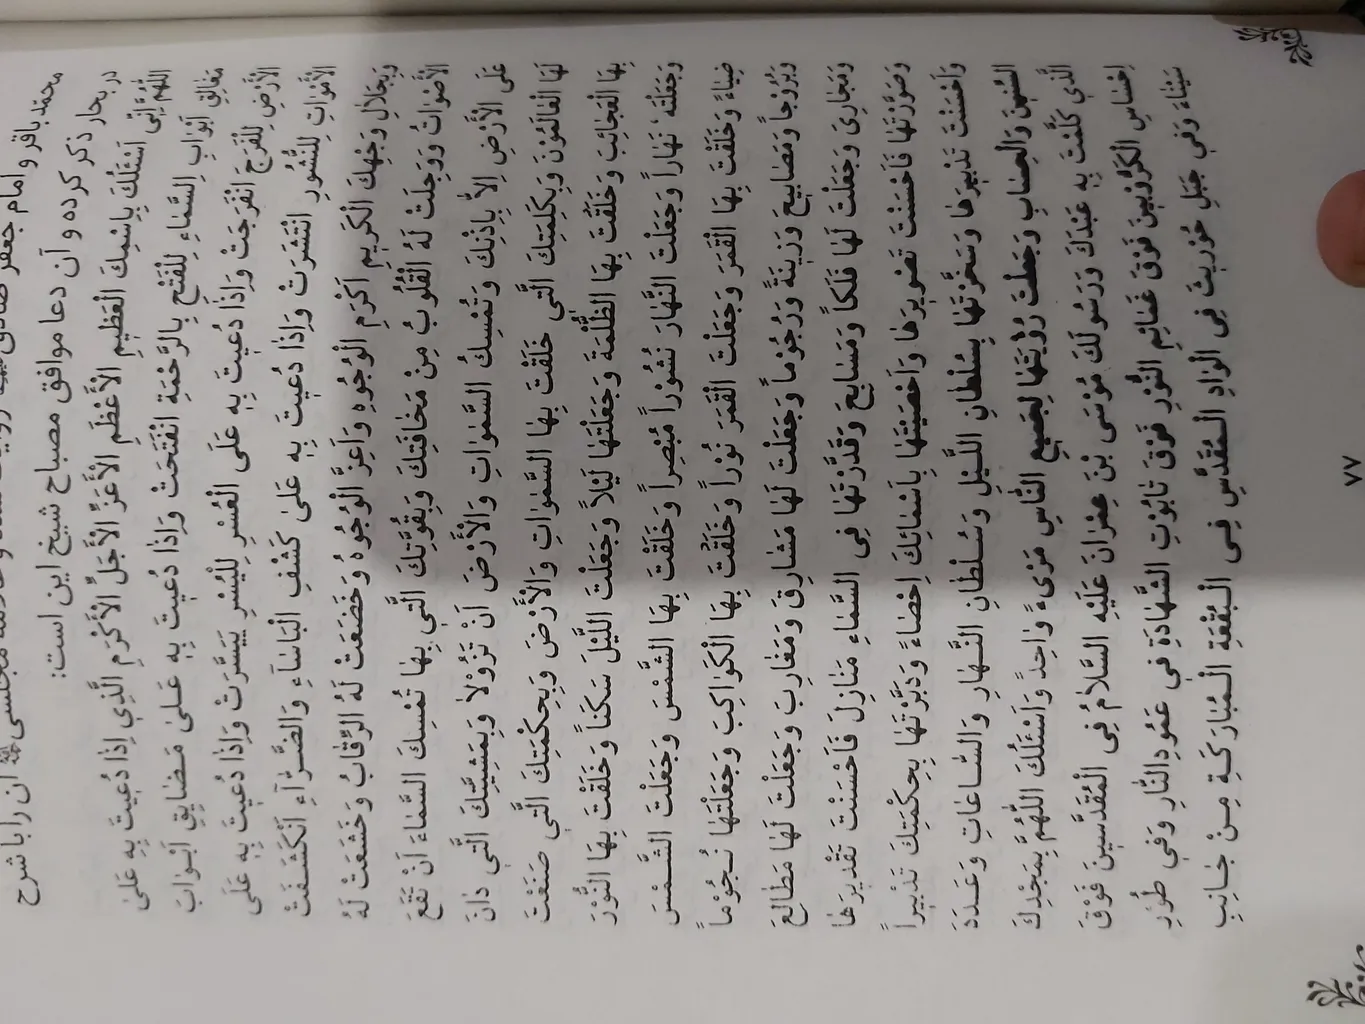 محمد باقر و امام جعفر صادق روایت شده و علامه مجلسی آن را با شرح
در بحار ذکر کرده و آن دعا موافق مصباح شیخ این است:
اَللّٰهُمَّ اِنّٰى اَسْئَلُكَ بِاِسْمِكَ الْعَظِيمِ الْأَعْظَمِ الْأَعَزِّ الْأَجَلِّ الْأَكْرَمِ الَّذِي اِذٰا دُعِيتَ بِهِ عَلىٰ
مَغٰالِقِ اَبْوٰابِ السَّمٰاءِ لِلْفَتْحِ بِالرَّحْمَةِ انْفَتَحَتْ وَاِذٰا دُعِيتَ بِهِ عَلىٰ مَضٰايِقِ اَبْوٰابِ
الْأَرْضِ لِلْفَرَجِ انْفَرَجَتْ وَاِذٰا دُعِيتَ بِهِ عَلَى الْعُسْرِ لِلْيُسْرِ تَيَسَّرَتْ وَاِذٰا دُعِيتَ بِهِ عَلَى
الْأَمْوٰاتِ لِلنُّشُورِ انْتَشَرَتْ وَاِذٰا دُعِيتَ بِهِ عَلىٰ كَشْفِ الْبَاسٰاءِ وَالضَّرّٰاءِ اَنْكَشَفَتْ
وَبِجَلٰالِ وَجْهِكَ الْكَرِيمِ اَكْرَمِ الْوُجُوهِ وَاَعَزِّ الْوُجُوهِ وَخَضَعَتْ لَهُ الرِّقٰابُ وَخَشَعَتْ لَهُ
الْأَصْوٰاتُ وَوَجِلَتْ لَهُ الْقُلُوبُ مِنْ مَخٰافَتِكَ وَبِقُوَّتِكَ الَّتِي بِهٰا تُمْسِكَ السَّمٰاءَ اَنْ تَقَعَ
عَلَى الْأَرْضِ اِلّٰا بِاِذْنِكَ وَتُمْسِكُ السَّمٰوٰاتِ وَالْأَرْضَ اَنْ تَزُوْلٰا وَبِمَشِيَّتِكَ الَّتِي دٰانَ
لَهَا الْعٰالَمُوْنَ وَبِكَلِمَتِكَ الَّتِي خَلَقْتَ بِهٰا السَّمٰوٰاتِ وَالْأَرْضَ وَبِحِكْمَتِكَ الَّتِي صَنَعْتَ
بِهَا الْعَجٰائِبَ وَخَلَقْتَ بِهَا الظُّلْمَةَ وَجَعَلْتَهٰا لَيْلًا وَجَعَلْتَ اللَّيْلَ سَكَناً وَخَلَقْتَ بِهَا النُّوْرَ
وَجَعَلْتَهُ نَهٰاراً وَجَعَلْتَ النَّهٰارَ نُشُوْراً مُبْصِراً وَخَلَقْتَ بِهَا الشَّمْسَ وَجَعَلْتَ الشَّمْسَ
ضِيٰاءً وَخَلَقْتَ بِهَا الْقَمَرَ وَجَعَلْتَ الْقَمَرَ نُوْراً وَخَلَقْتَ بِهَا الْكَوٰاكِبَ وَجَعَلْتَهٰا نُجُوْماً
وَبُرُوْجاً وَمَصٰابِيحَ وَزِيْنَةً وَرُجُوْماً وَجَعَلْتَ لَهٰا مَشٰارِقَ وَمَغٰارِبَ وَجَعَلْتَ لَهٰا مَطٰالِعَ
وَمَجٰارِىَ وَجَعَلْتَ لَهٰا فَلَكاً وَمَسٰابِحَ وَقَدَّرْتَهٰا فِى السَّمٰاءِ مَنٰازِلَ فَاَحْسَنْتَ تَقْدِيرَهٰا
وَصَوَّرْتَهٰا فَاَحْسَنْتَ تَصْوِيرَهٰا وَاَحْصَيْتَهٰا بِاَسْمٰائِكَ اِحْصٰاءً وَدَبَّرْتَهٰا بِحِكْمَتِكَ تَدْبِيراً
وَاَحْسَنْتَ تَدْبِيرَهٰا وَسَخَّرْتَهٰا بِسُلْطٰانِ اللَّيْلِ وَسُلْطٰانِ النَّهٰارِ وَالسّٰاعٰاتِ وَعَدَدَ
السِّنِينَ وَالْحِسٰابِ وَجَعَلْتَ رُؤْيَتَهٰا لِجَمِيعِ النّٰاسِ مَرْىءً وٰاحِداً وَاَسْئَلُكَ اللّٰهُمَّ بِمَجْدِكَ
الَّذِي كَلَّمْتَ بِهِ عَبْدَكَ وَرَسُولَكَ مُوْسَى بْنَ عِمْرٰانَ عَلَيْهِ السَّلٰامُ فِى الْمُقَدَّسِينَ فَوْقَ
اِحْسٰاسِ الْكَرُوْبِينَ فَوْقَ غَمٰائِمِ النُّوْرِ فَوْقَ تٰابُوْتِ الشَّهٰادَةِ فِي عَمُوْدِ النّٰارِ وَفِي طُوْرِ
سَيْنٰاءَ وَفِي جَبَلِ حُوْرِيثَ فِى الْوٰادِ الْمُقَدَّسِ فِى الْبُقْعَةِ الْمُبٰارَكَةِ مِنْ جٰانِبِ
۷۷